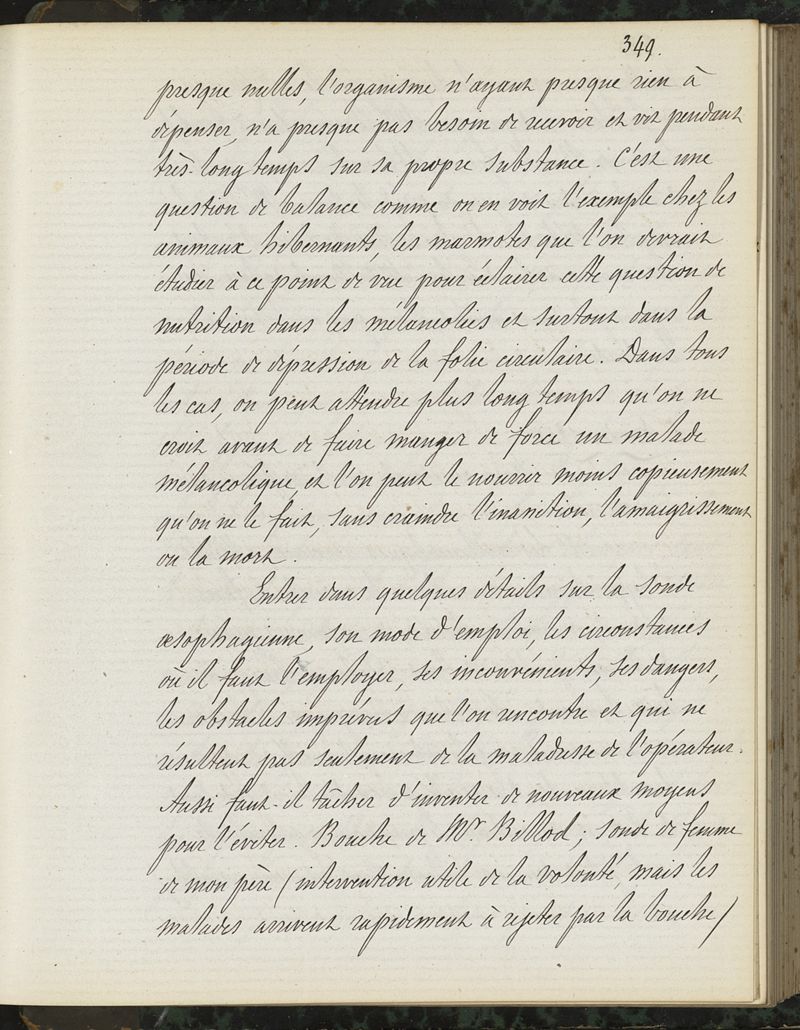 349.
presque nulles, l'organisme n'ayant presque rien à
dépenser, n'a presque pas besoin de recevoir et vit pendant
très-long temps sur sa propre substance. C'est une
question de balance comme on en voit l'exemple chez les
animaux hibernants, les marmotes que l'on devrait
étudier à ce point de vue pour éclairer cette question de
nutrition dans les mélancolies et surtout dans la
période de dépression de la folie circulaire. Dans tous
les cas, on peut attendre plus long temps qu'on ne
croit avant de faire manger de force un malade
mélancolique et l'on peut le nourrir moins copieusement
qu'on ne le fait, sans craindre l'inanition, l'amaigrissement
ou la mort.
Entrer dans quelques détails sur la sonde
œsophagienne, son mode d'emploi, les circonstances
où il faut l'employer, ses inconvénients, ses dangers,
les obstacles imprévus que l'on rencontre et qui ne
résultent pas seulement de la maladresse de l'opérateur.
Aussi faut-il tâcher d'inventer de nouveaux moyens
pour l'éviter. Bouche de Mr. Billod; sonde de femme
de mon père (intervention utile de la volonté, mais les
malades arrivent rapidement à rejeter par la bouche)